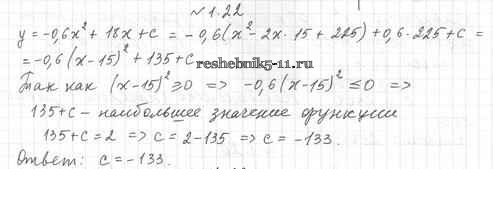 №1.22.
y = -0,6x² + 18x + c = -0,6(x² - 2x · 15 + 225) + 0,6 · 225 + c =
= -0,6(x - 15)² + 135 + c
reshebnik5-11.ru
Так как (x - 15)² ≥ 0 => -0,6(x - 15)² ≤ 0 =>
135 + c - наибольшее значение функции
135 + c = 2 => c = 2 - 135 => c = -133.
Ответ: c = -133.